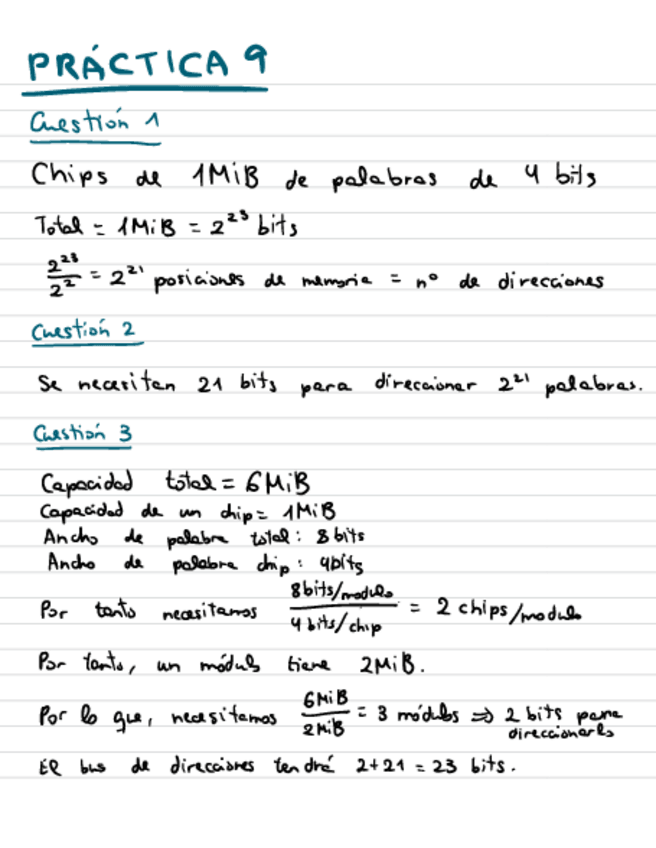 PRÁCTICA 9
Cuestión 1
Chips de 1MiB de palabras de 4 bits
Total = 1MiB = 2²³ bits
2²³/2² = 2²¹ posiciones de memoria = nº de direcciones
Cuestión 2
Se necesitan 21 bits para direccionar 2²¹ palabras.
Cuestión 3
Capacidad total = 6MiB
Capacidad de un chip = 1MiB
Ancho de palabra total: 8 bits
Ancho de palabra chip: 4bits
Por tanto necesitamos 8bits/modulo / 4 bits/chip = 2 chips/modulo
Por tanto, un módulo tiene 2MiB.
Por lo que, necesitamos 6MiB/2MiB = 3 módulos ⇒ 2 bits para direccionarlo
El bus de direcciones tendrá 2+21 = 23 bits.